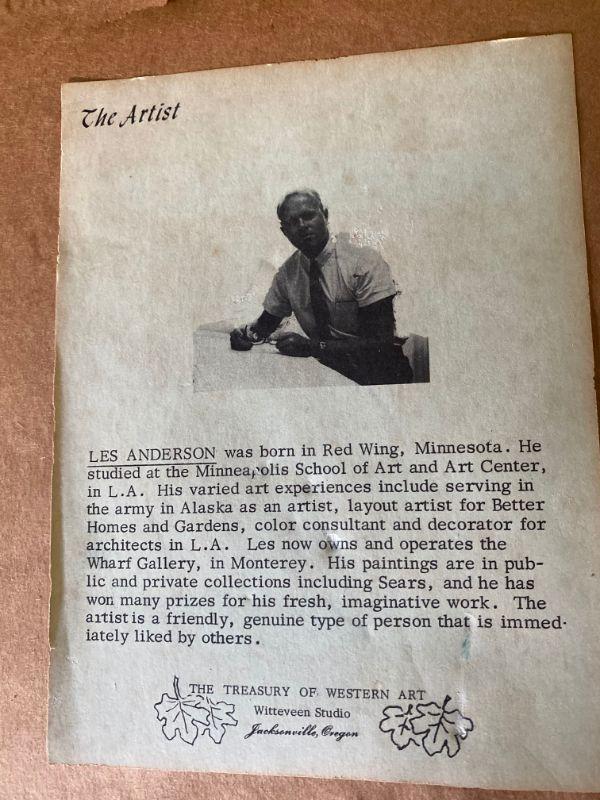 The Artist
LES ANDERSON was born in Red Wing, Minnesota. He
studied at the Minneapolis School of Art and Art Center,
in L.A. His varied art experiences include serving in
the army in Alaska as an artist, layout artist for Better
Homes and Gardens, color consultant and decorator for
architects in L.A. Les now owns and operates the
Wharf Gallery, in Monterey. His paintings are in pub-
lic and private collections including Sears, and he has
won many prizes for his fresh, imaginative work. The
artist is a friendly, genuine type of person that is immed-
iately liked by others.
THE TREASURY OF WESTERN ART
Witteveen Studio
Jacksonville, Oregon